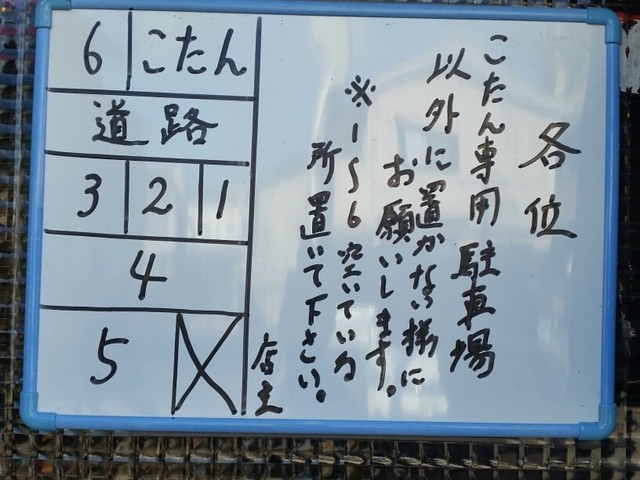 各位
こたん専用駐車場
以外に置かない様に
お願いします。
※1〜6空いている
所置いて下さい。
店主
6 こたん
道路
3 2 1
4
5